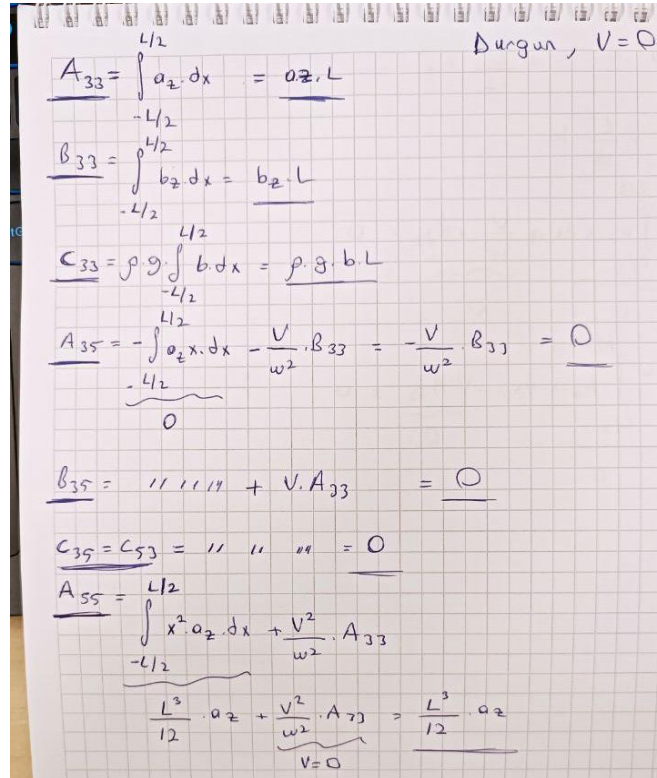 Durgun, V = 0
A33 = ∫_{-L/2}^{L/2} az.dx = az.L
B33 = ∫_{-L/2}^{L/2} bz.dx = bz.L
C33 = ρ.g.∫_{-L/2}^{L/2} b.dx = ρ.g.b.L
A35 = -∫_{-L/2}^{L/2} az x.dx - V/w² . B33 = - V/w² . B33 = 0
0
B35 = " " " + V.A33 = 0
C35 = C53 = " " " = 0
A55 = ∫_{-L/2}^{L/2} x².az.dx + V²/w² . A33
L³/12 . az + V²/w² . A33 = L³/12 . az
V=0